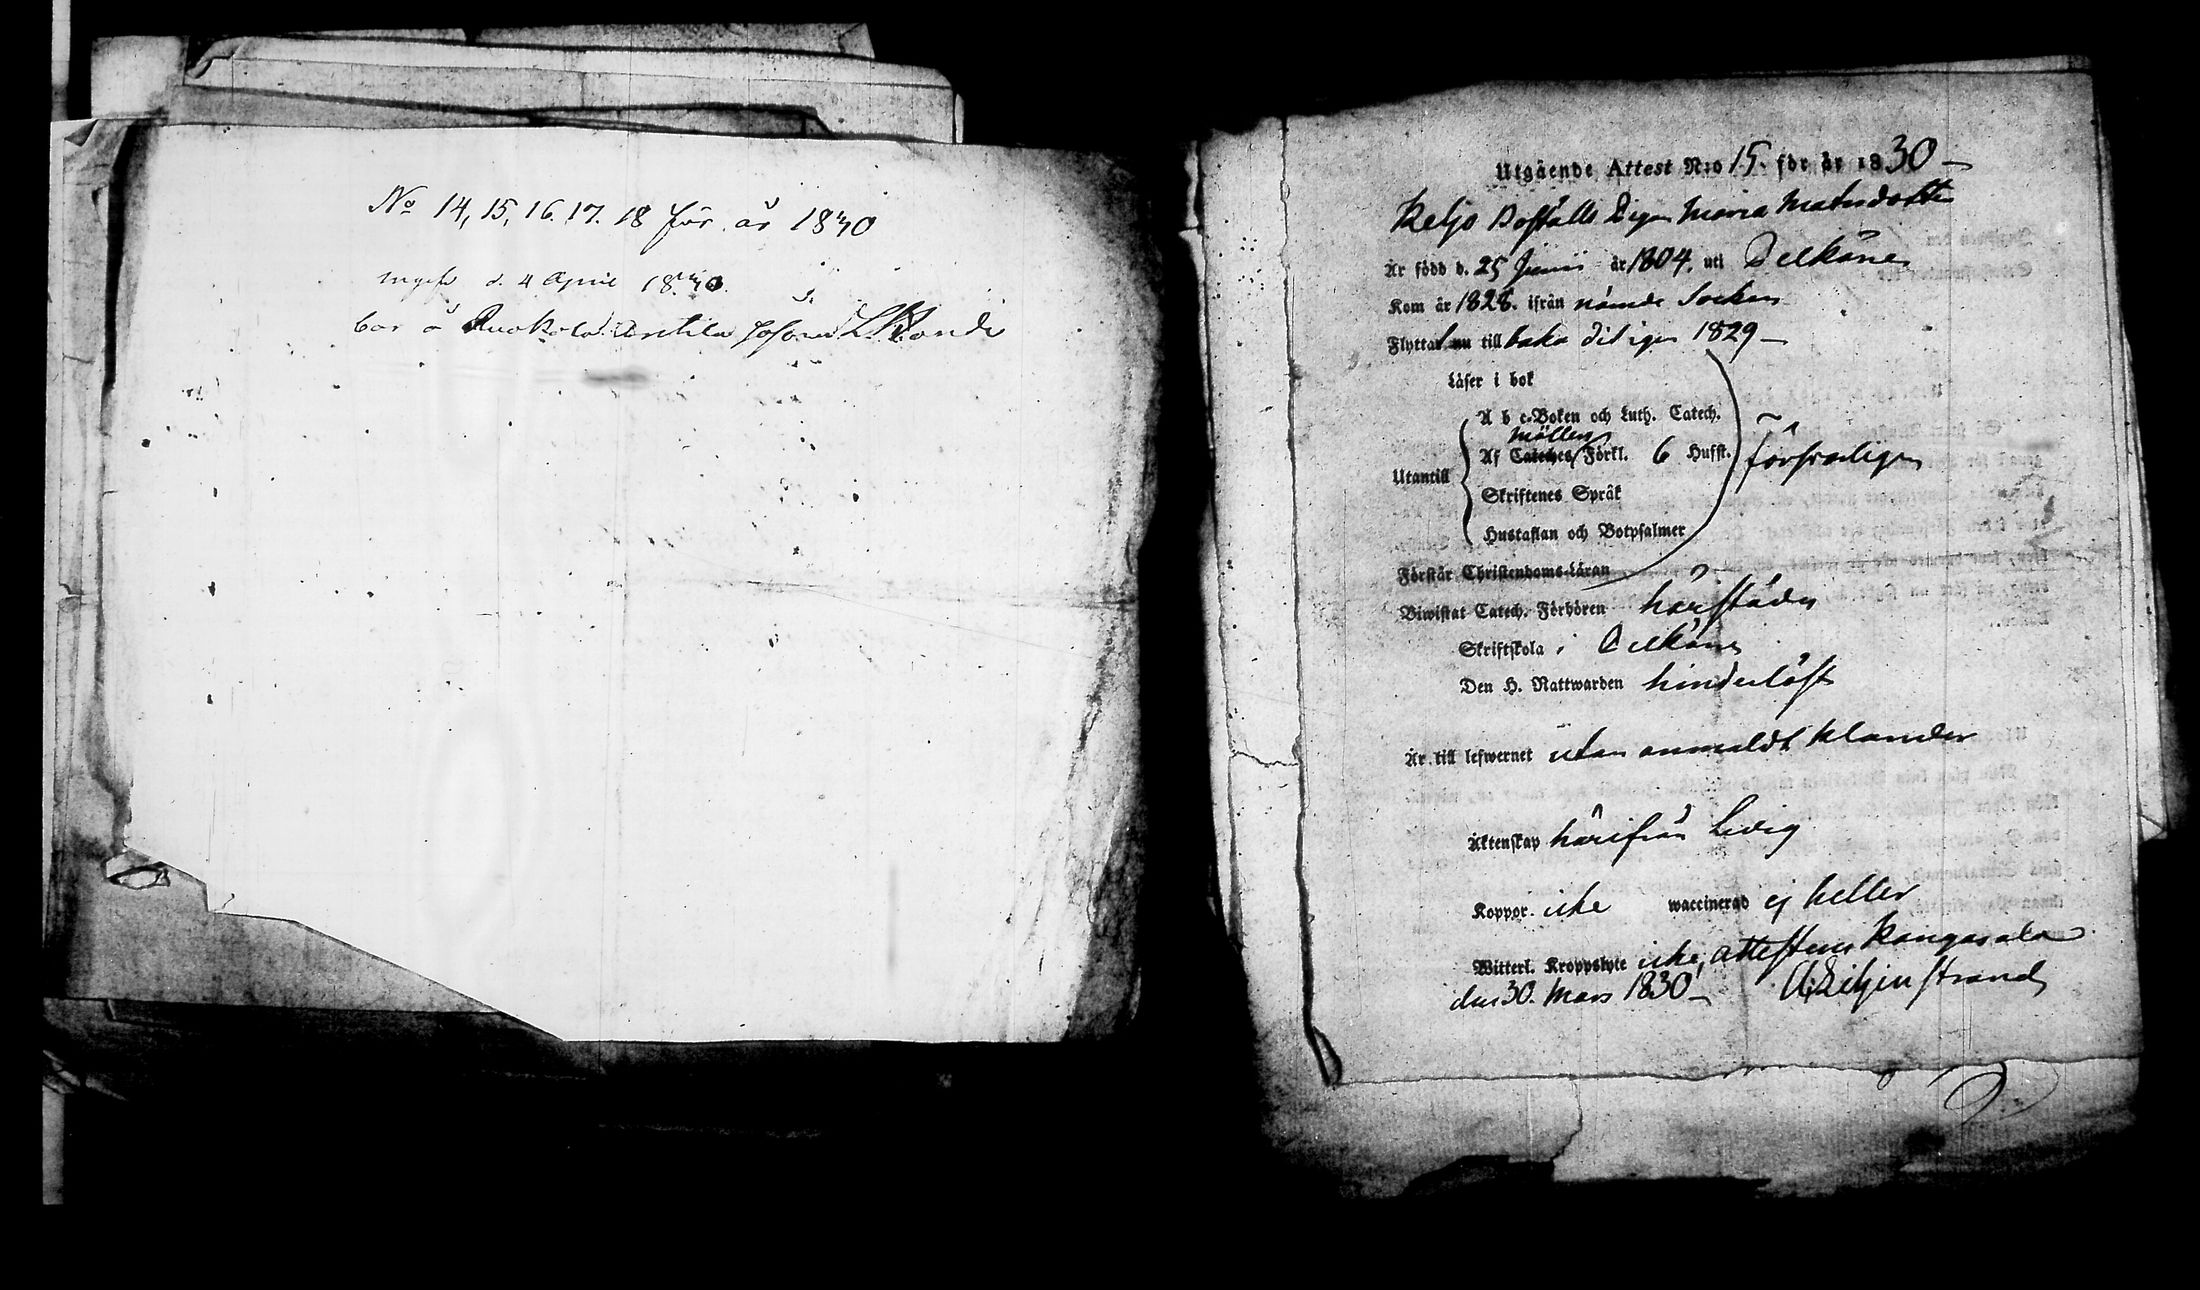 No 14, 15, 16. 17. 18 för år 1830
d. 4 April 1830.
Utgående Attest N:o 15. för år 1830
Keljo Boställs Pigan Maria Matsdotter
Är född d. 25 Junii år 1804. uti Pelkäne
Kom år 1828. ifrån nämde Socken
Flyttat nu tillbaka dit igen 1829
Läser i bok
A b c-Boken och Luth. Catech.
möllers
Utantill Af Cateches Förkl. 6 Hufst. försvarligen
Skriftenes Språk
Hustaflan och Botpsalmer
Förstår Christendoms-Läran
Biwistat Catech. Förhören härstädes
Skriftskola i Pelkäne
Den H. Nattwarden hinderlöst
Är till lefwernet utan anmäldt klander
Äktenskap härifrån ledig
Koppor. icke waccinerad ej heller
Witterl. Kroppslyte icke, attesterer Kangasala
den 30. Mars 1830. A. Liljenstrand